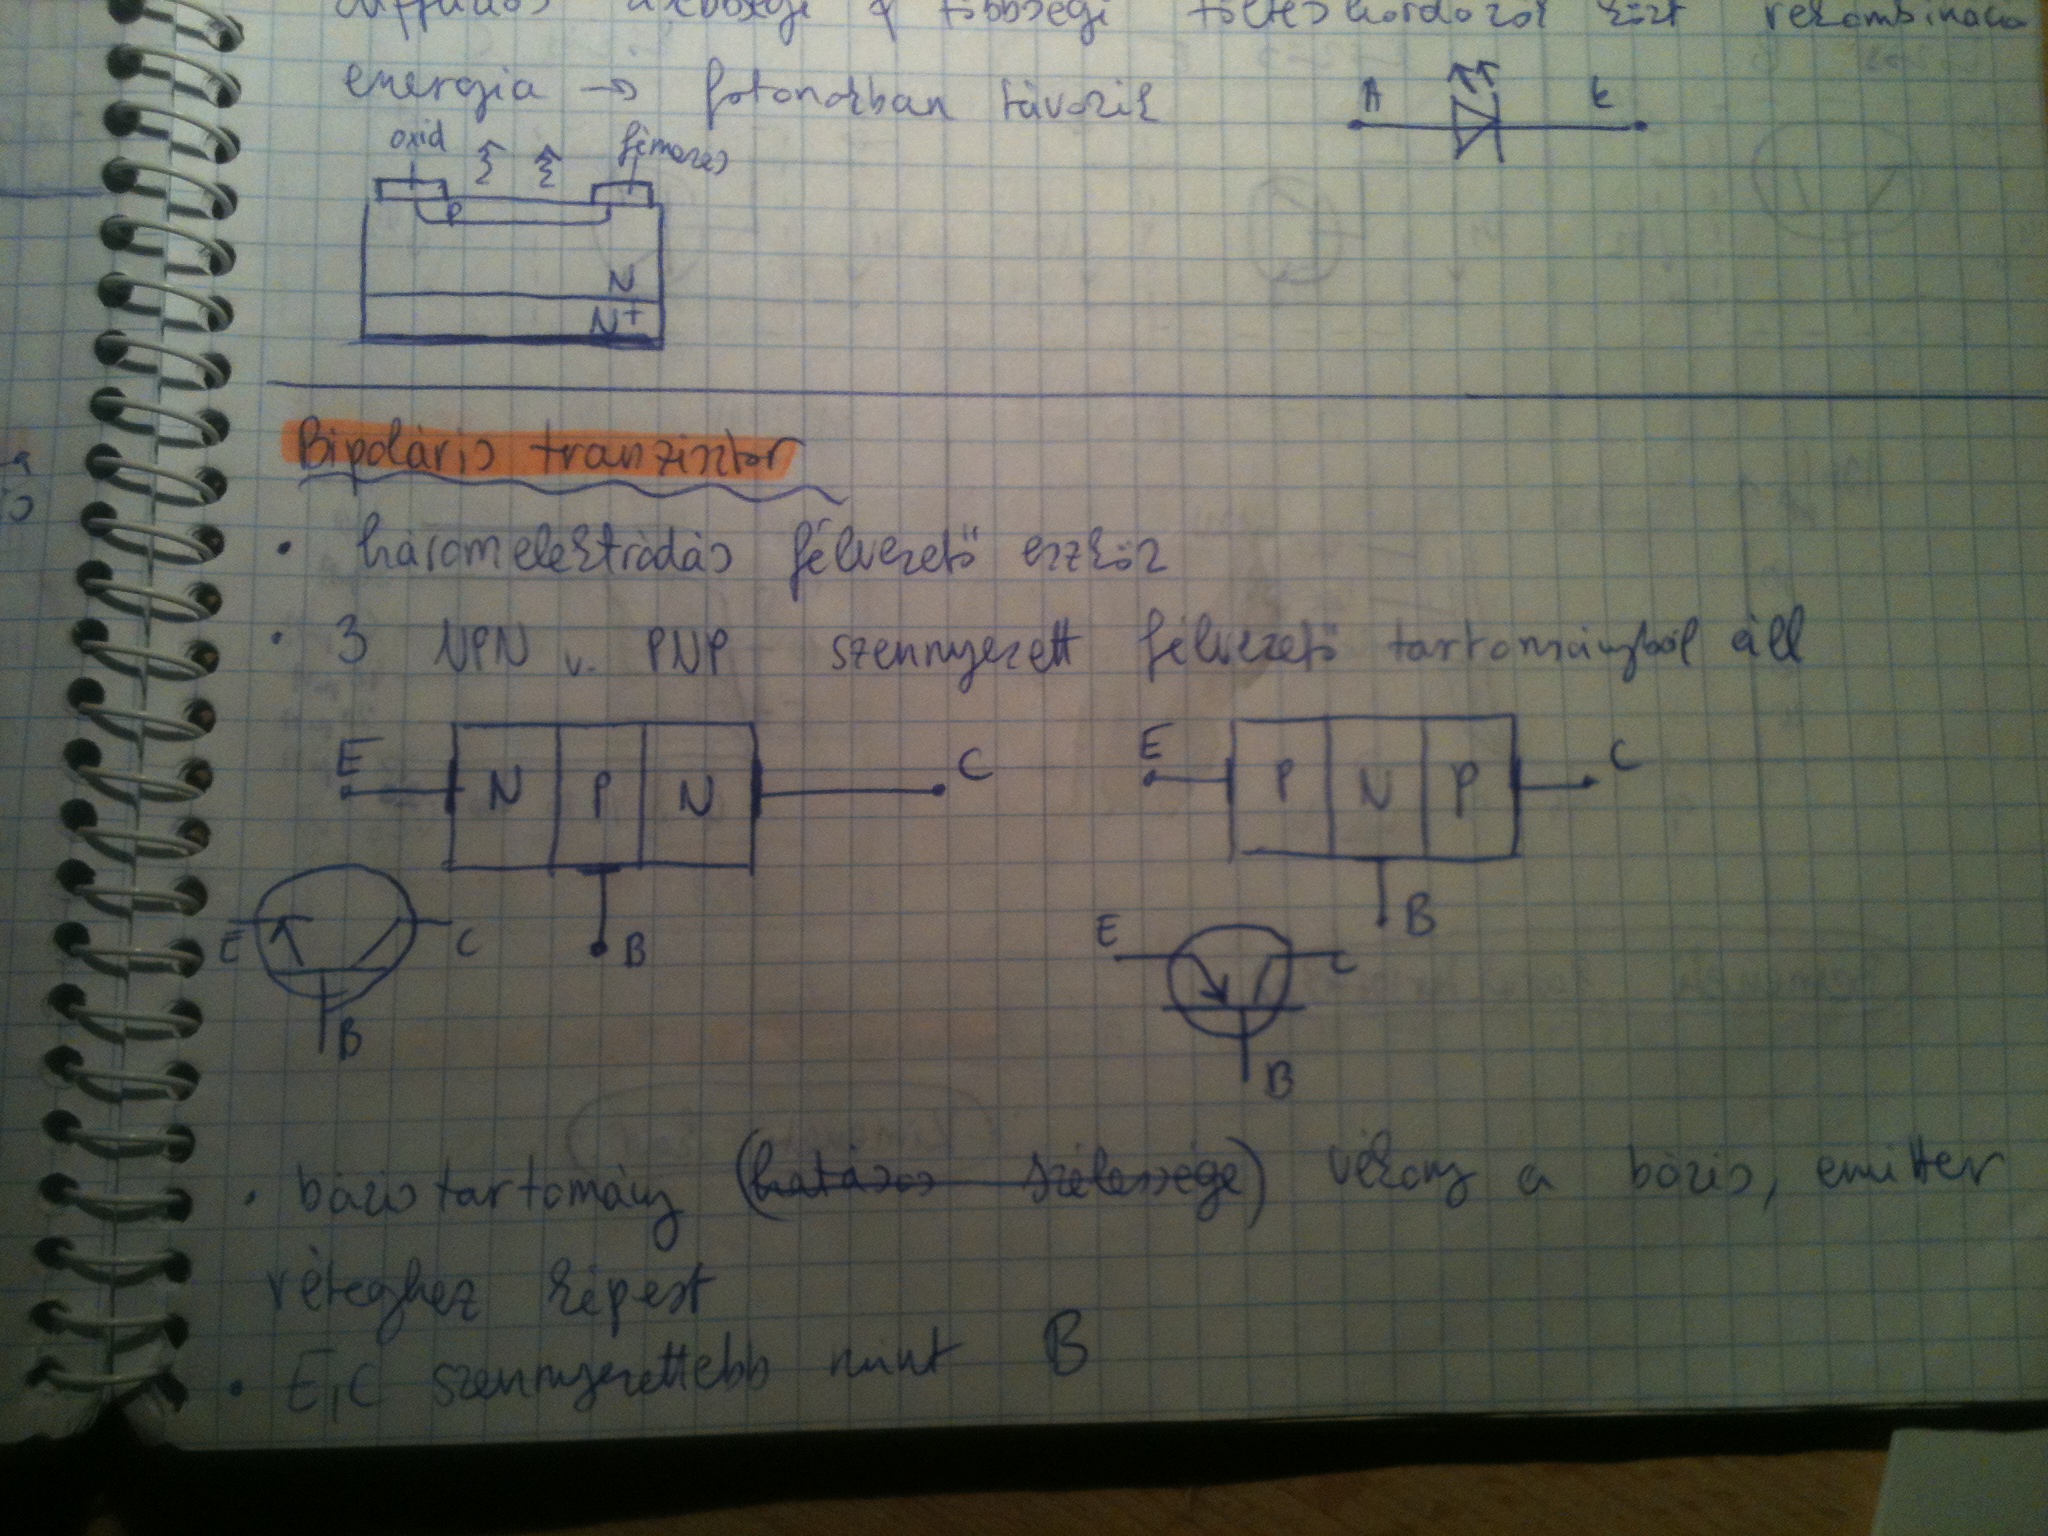 kisebbségi q többségi töltéshordozók közt rekombináció
energia → fotonokban távozik
A K
oxid fémezés
P
N
N+
Bipoláris tranzisztor
• háromelektródás félvezető eszköz
• 3 NPN v. PNP szennyezett félvezető tartományból áll
E N P N C E P N P C
B B
E C E C
B B
• bázis tartomány (hatásos szélessége) vékony a bázis, emitter
réteghez képest
• E, C szennyezettebb mint B